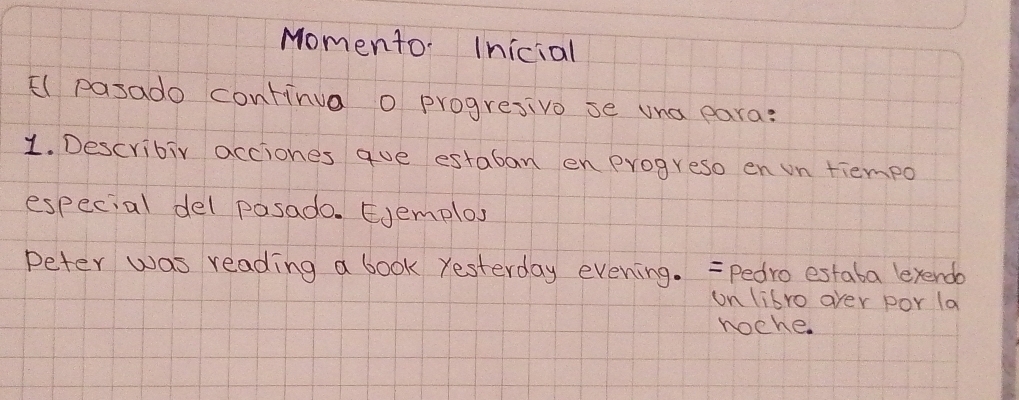 Momento. Inicial
El pasado continua o progresivo se una para:
1. Describir acciones que estaban en progreso en un tiempo
especial del pasado. Ejemplos
peter was reading a book yesterday evening. = pedro estaba leyendo
un libro ayer por la
noche.